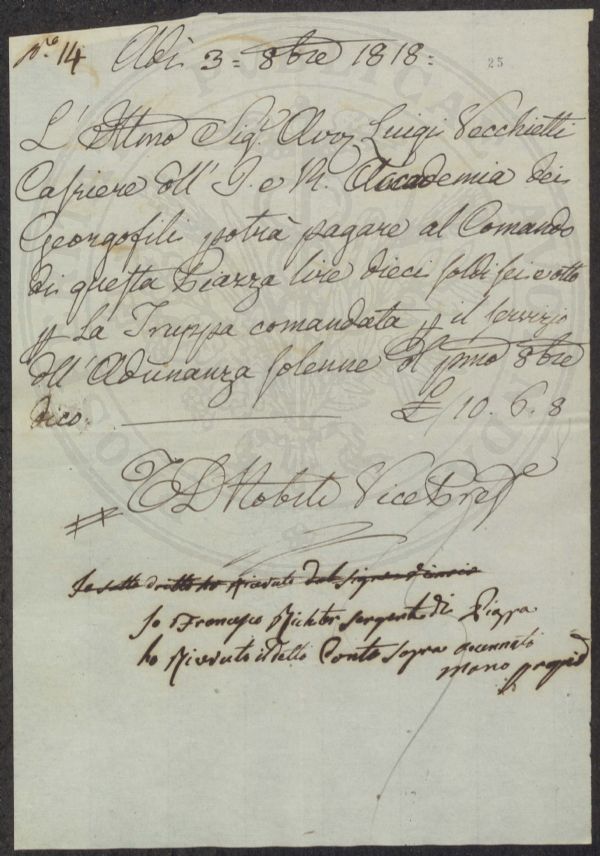 N.o 14 Adì 3 = 8bre 1818 =
25
L' Illmo Sigr. Avv. Luigi Vecchietti
Cassiere dll' I. e R. Accademia dei
Georgofili potrà pagare al Comando
di questa Piazza lire dieci soldi sei e otto
p La Truppa comandata p il servizio
dll' Adunanza solenne dl pmo 8bre
dico. £ 10. 6. 8
T D Nobili Vice Preste
Io sotto dritto ho Ricevuto dal Signor
Io Francesco Richter sergente di Piazza
ho Ricevuto il dello Conto sopra accennato
mano propria